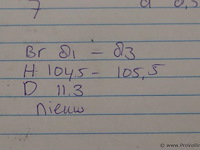 7 d 0,5
Br 81 - 83
H 104,5 - 105,5
D 11.3
nieuw